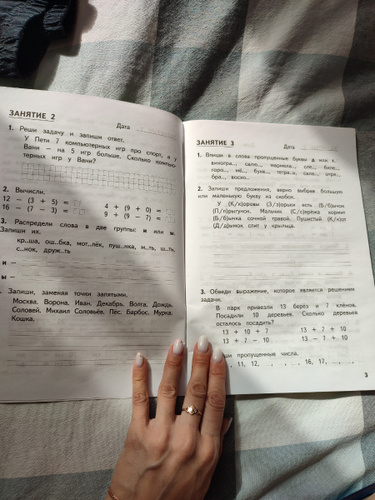 ЗАНЯТИЕ 2
Дата
1. Реши задачу и запиши ответ.
У Пети 7 компьютерных игр про спорт, а у
Вани — на 5 игр больше. Сколько компью-
терных игр у Вани?
2. Вычисли.
12 − (3 + 5) =
4 + (9 + 0) =
16 − (7 − 3) =
9 + (9 − 7) =
3. Распредели слова в две группы: и или ы.
Запиши их.
кр..ша, ош..бка, мот..лёк, пуш..нка, м..ть, ш..ть,
с..нок, друж..ть
и —
ы —
Запиши, заменяя точки запятыми.
Москва. Ворона. Иван. Декабрь. Волга. Дождь.
Соловей. Михаил Соловьёв. Пёс. Барбос. Мурка.
Кошка.
ЗАНЯТИЕ 3
Дата
1. Впиши в слова пропущенные буквы д или т.
виногра..., сало..., медве..., сле..., биле...,
горо..., лё..., бук..., тетра..., сала..., отря...,
бра..., восхо...
2. Запиши предложения, верно выбрав большую
или маленькую букву из скобок.
У (К/к)оровы (З/з)орьки есть (Б/б)ычок
(П/п)рыгунок. Мальчик (С/с)ерёжа кормит
(Б/б)ычка сочной травой. Пушистый (К/к)от
(Д/д)ымок спит у крыльца.
3. Обведи выражение, которое является решением
задачи.
В парк привезли 13 берёз и 7 клёнов.
Посадили 10 деревьев. Сколько деревьев
осталось посадить?
13 + 10 + 7
13 + 7 + 10
13 + 7 − 10
13 − 7 + 10
пропущенные числа.
11, 12,
16, 17,
3